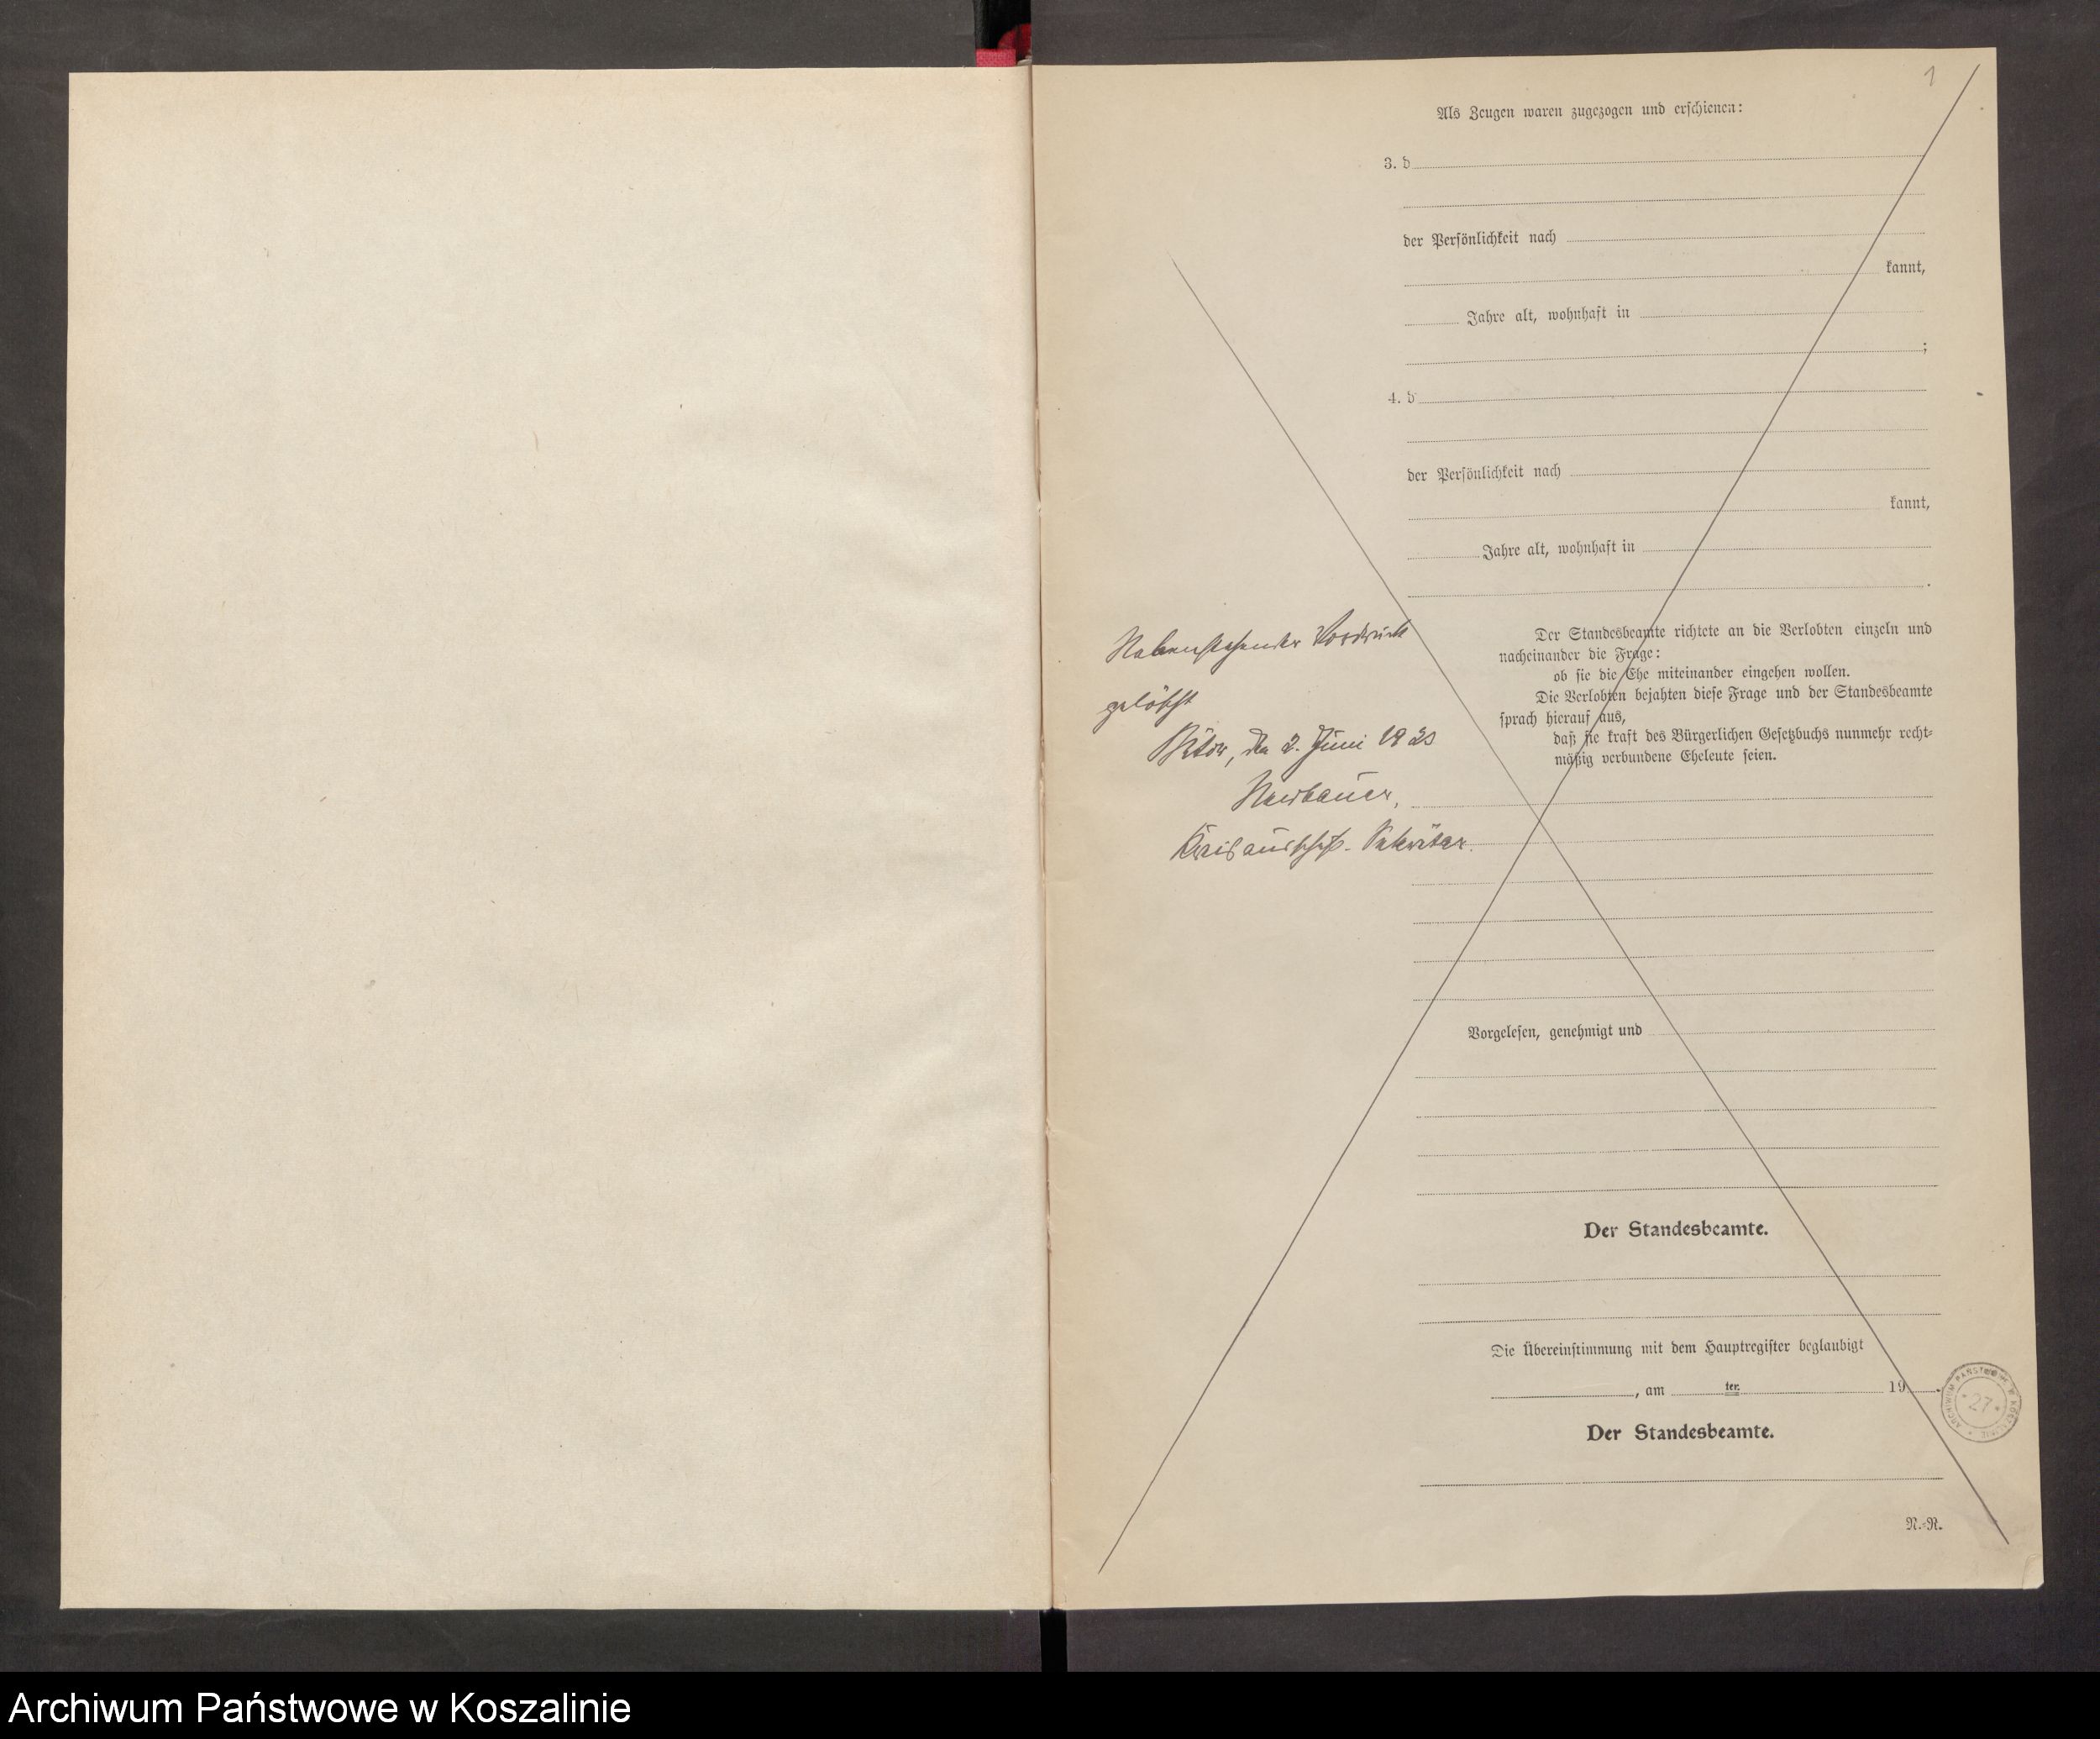 1
Als Zeugen waren zugezogen und erschienen:
3. d
der Persönlichkeit nach
kannt,
Jahre alt, wohnhaft in
;
4. d
der Persönlichkeit nach
kannt,
Jahre alt, wohnhaft in
.
Nebenstehender Vordruck
gelöscht
Bütow, den 2. Juni 19
Neubauer,
Kreisaussch.-Sekretär.
Der Standesbeamte richtete an die Verlobten einzeln und
nacheinander die Frage:
ob sie die Ehe miteinander eingehen wollen.
Die Verlobten bejahten diese Frage und der Standesbeamte
sprach hierauf aus,
daß sie kraft des Bürgerlichen Gesetzbuchs nunmehr recht-
mäßig verbundene Eheleute seien.
Vorgelesen, genehmigt und
Der Standesbeamte.
Die Übereinstimmung mit dem Hauptregister beglaubigt
, am ten 19 .
Der Standesbeamte.
N.-R.
ARCHIWUM PAŃSTWOWE W KOSZALINIE
* 27 *
Archiwum Państwowe w Koszalinie